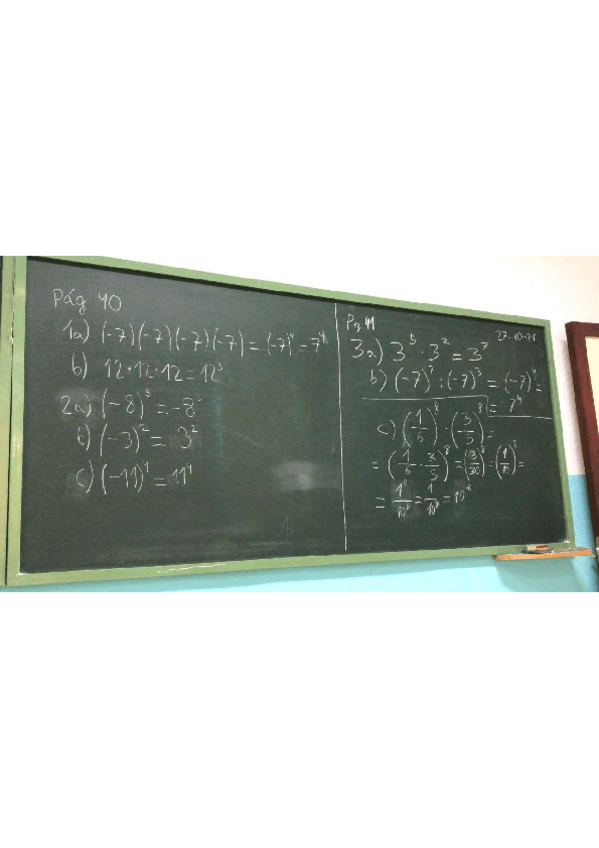 Pág 40
1a) (-7)(-7)(-7)(-7) = (-7)⁴ = 7⁴
b) 12·12·12 = 12³
2a) (-8)³ = -8³
b) (-3)² = 3²
c) (-11)⁴ = 11⁴
Pg 41
27-10-21
3a) 3⁵ · 3² = 3⁷
b) (-7)⁷ : (-7)³ = (-7)⁴ =
= 7⁴
c) (1/6)⁸ · (3/5)⁸ =
= (1/6 · 3/5)⁸ = (3/30)⁸ = (1/10)⁸ =
= 1⁸/10⁸ = 1/10⁸ = 10⁻⁸